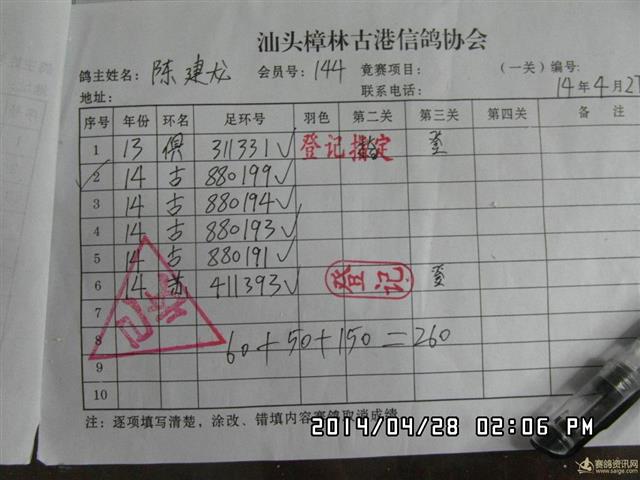 汕头樟林古港信鸽协会
鸽主姓名: 陈建龙 会员号: 144 竞赛项目: (一关) 编号:
地址: 联系电话: 14年4月27
序号 年份 环名 足环号 羽色 第二关 第三关 第四关 备 注
1 13 俱 311331√ 登记指定
2 14 古 880199√
3 14 古 880194√
4 14 古 880193√
5 14 古 880191√
6 14 苏 411393√ 登记
7
8 60+50+150=260
9
10
注: 逐项填写清楚,涂改、错填内容赛鸽取消成绩
2014/04/28 02:06 PM
赛鸽资讯网
www.saige.com